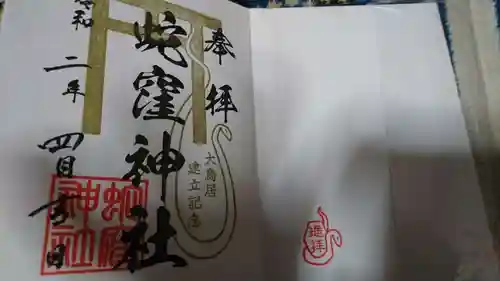 奉拝
大鳥居
建立記念
蛇窪神社
令和二年四月吉日
蛇窪
神社
遥拝